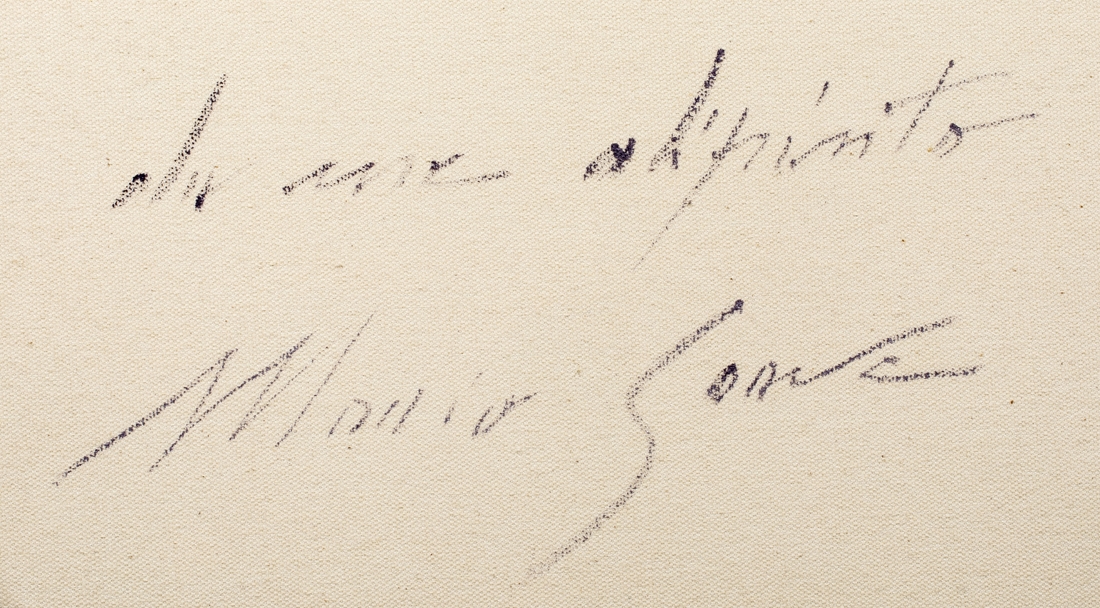 da me dipinto
Mario Soave